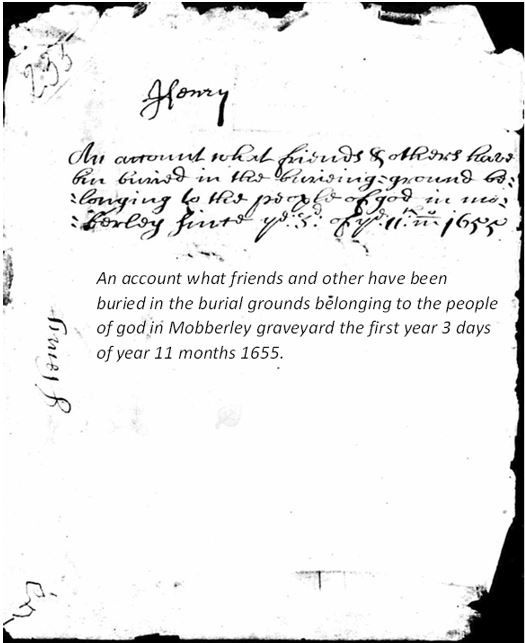 233
Henry
An account what friends & others have
bin buried in the burieing=ground be=
=longing to the people of god in mo=
=berley since ye 3d of ye 11 m 1655
An account what friends and other have been
buried in the burial grounds belonging to the people
of god in Mobberley graveyard the first year 3 days
of year 11 months 1655.